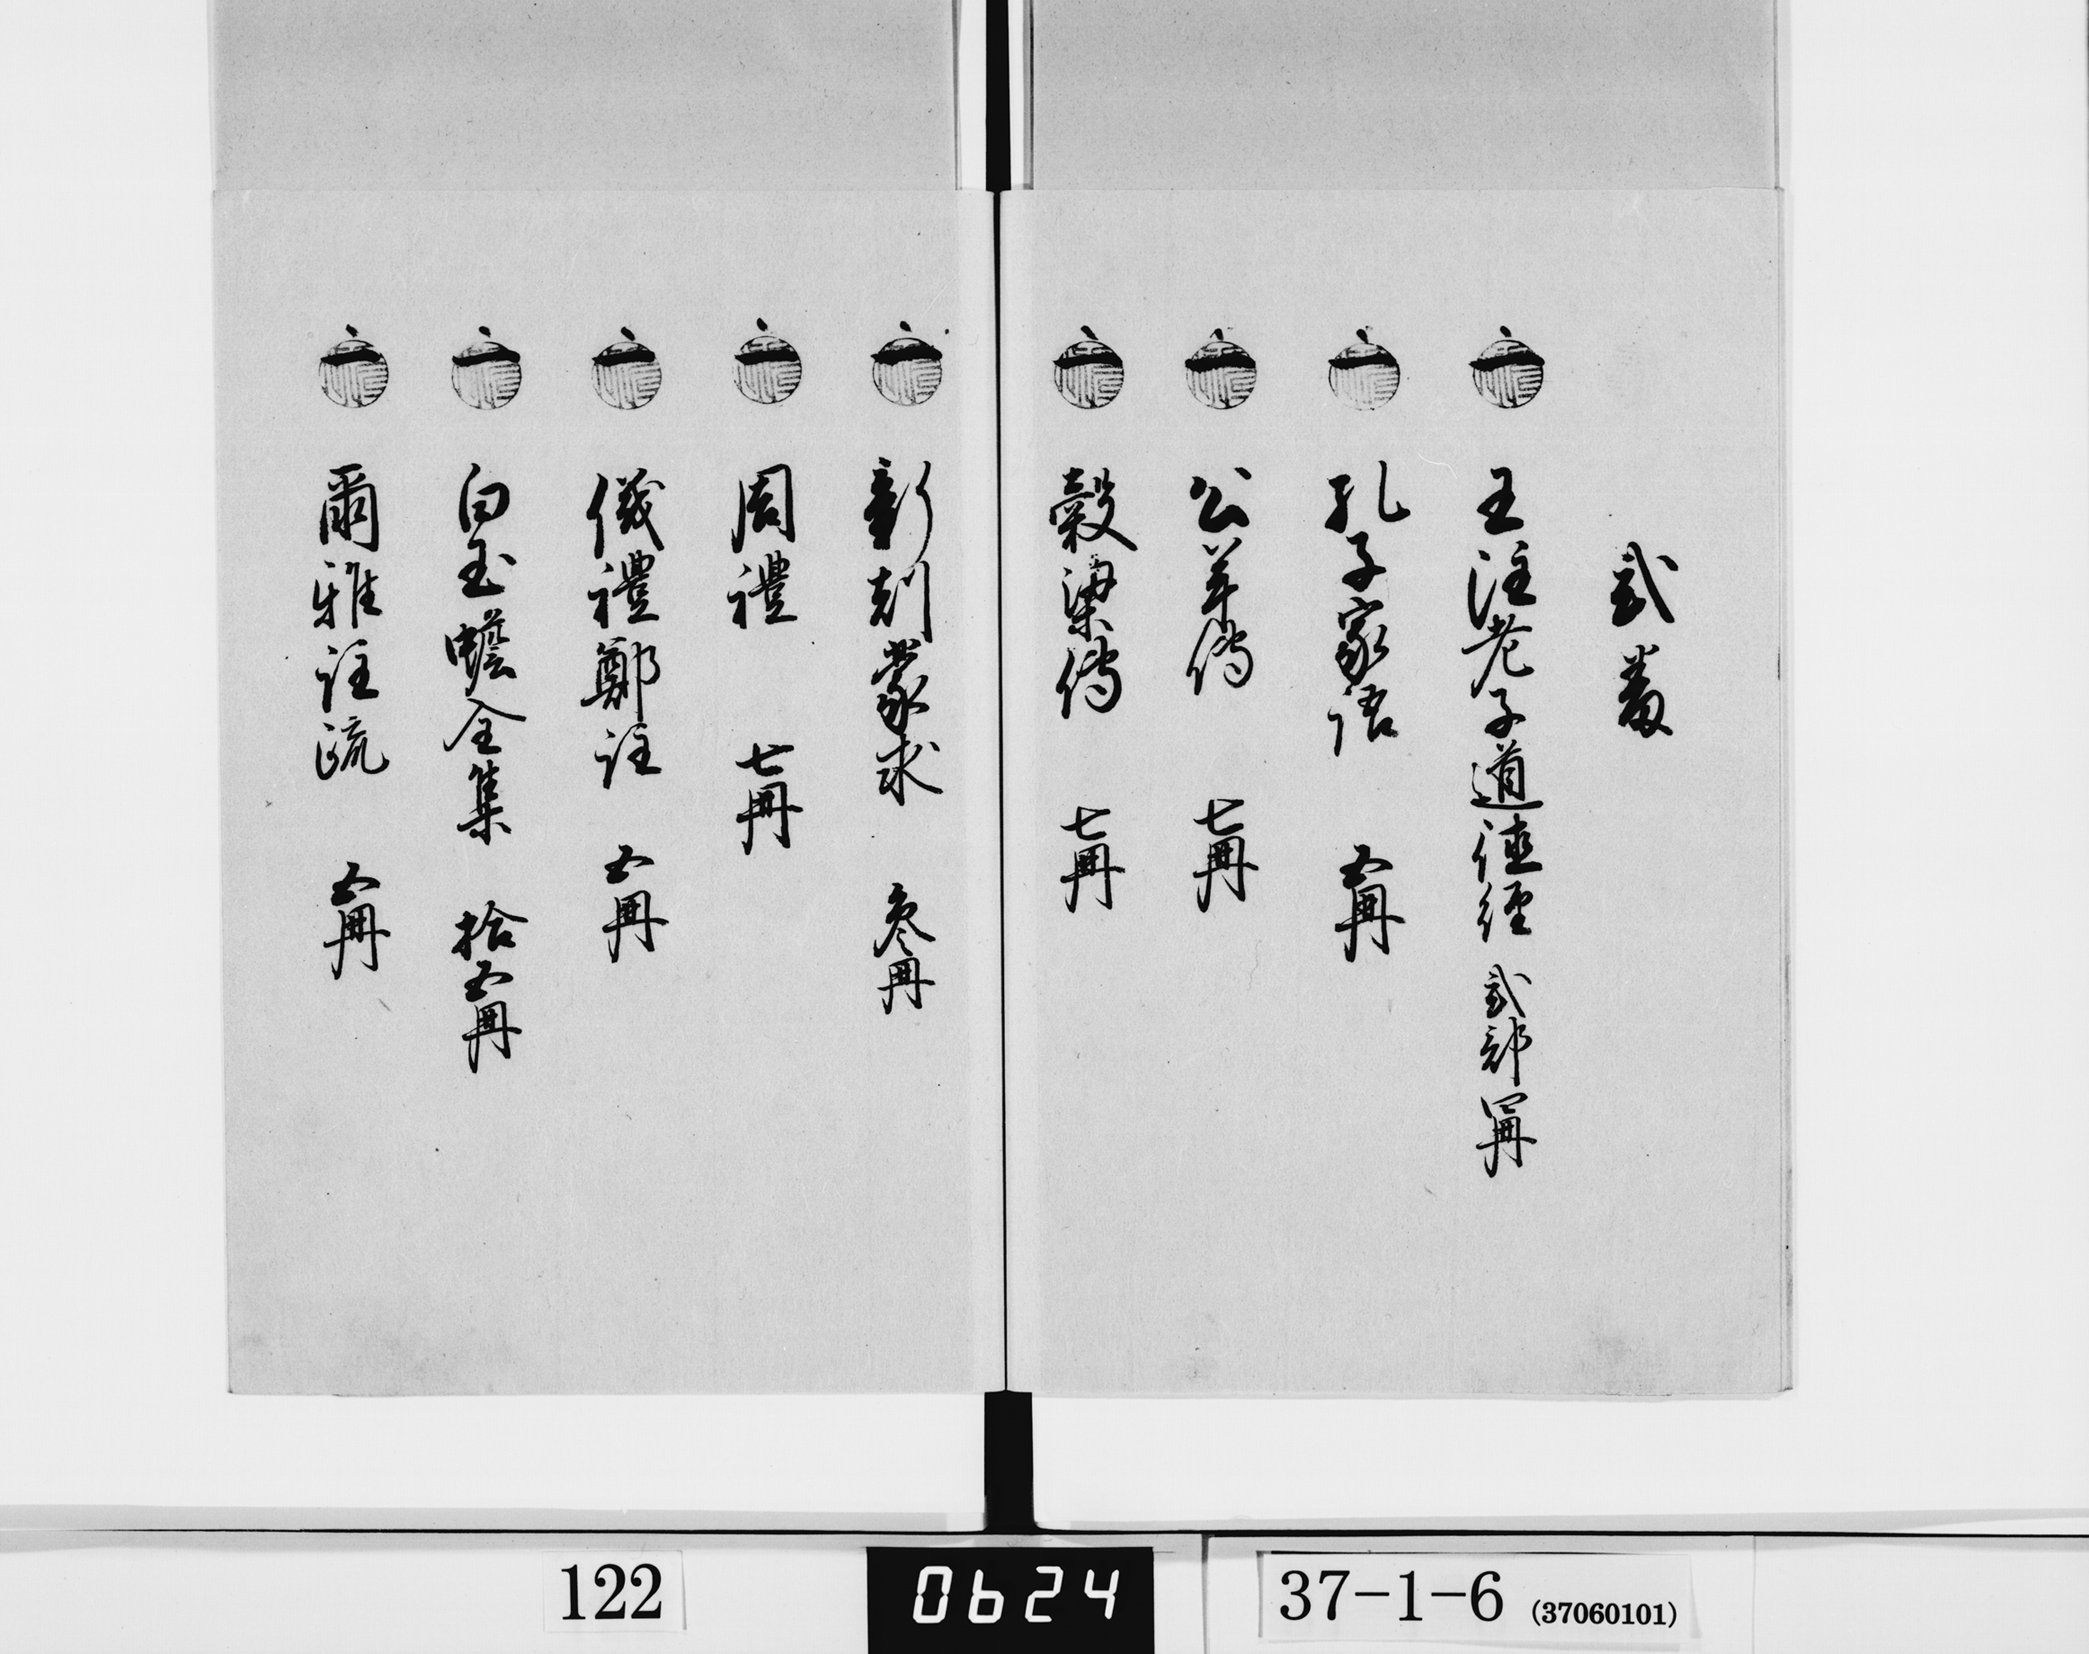 弐番
王注老子道徳経 弐部 四冊
孔子家語 五冊
公羊傳 七冊
穀梁傳 七冊
新刻蒙求 参冊
周禮 七冊
儀禮鄭註 五冊
白玉蟾全集 拾五冊
爾雅註疏 五冊
122
0624
37-1-6 (37060101)